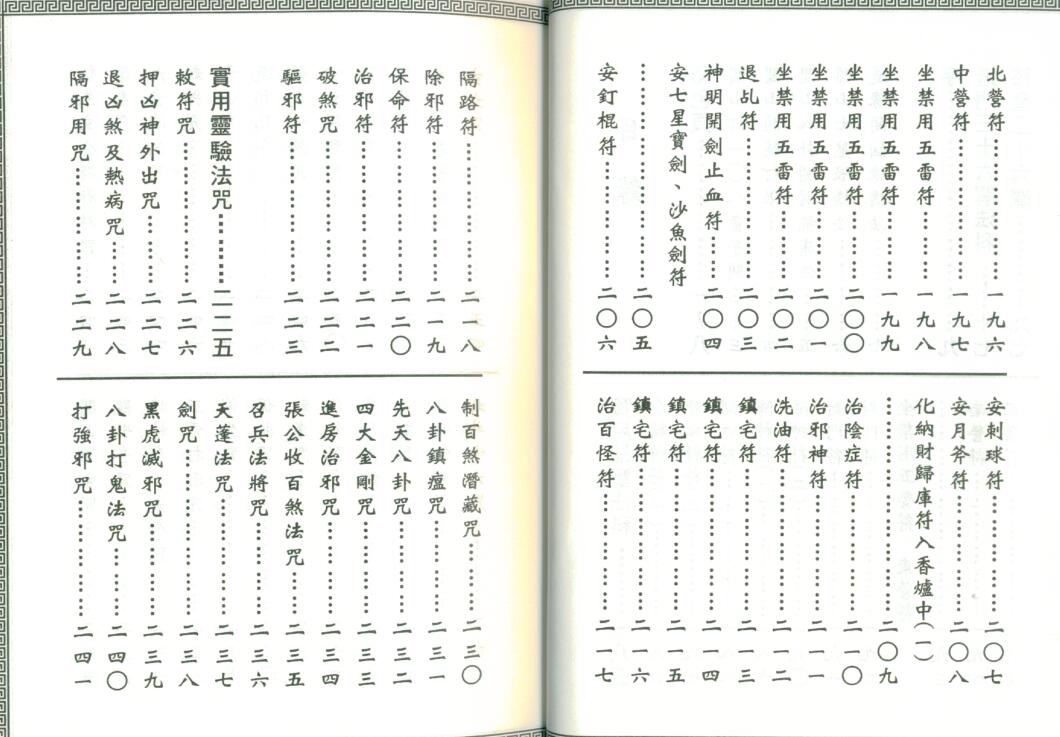 北營符……………一九六
中營符……………一九七
坐禁用五雷符……………一九八
坐禁用五雷符……………一九九
坐禁用五雷符……………二〇〇
坐禁用五雷符……………二〇一
坐禁用五雷符……………二〇二
退乩符……………二〇三
神明開劍止血符……………二〇四
安七星寶劍、沙魚劍符
……………二〇五
安釘棍符……………二〇六
安刺球符……………二〇七
安月斧符……………二〇八
化納財歸庫符入香爐中(一)
……………二〇九
治陰症符……………二一〇
治邪神符……………二一一
洗油符……………二一二
鎮宅符……………二一三
鎮宅符……………二一四
鎮宅符……………二一五
鎮宅符……………二一六
治百怪符……………二一七
隔路符……………二一八
除邪符……………二一九
保命符……………二二〇
治邪符……………二二一
破煞咒……………二二二
驅邪符……………二二三
實用靈驗法咒……………二二五
敕符咒……………二二六
押凶神外出咒……………二二七
退凶煞及熱病咒……………二二八
隔邪用咒……………二二九
制百煞潛藏咒……………二三〇
八卦鎮瘟咒……………二三一
先天八卦咒……………二三二
四大金剛咒……………二三三
進房治邪咒……………二三四
張公收百煞法咒……………二三五
召兵法將咒……………二三六
天蓬法咒……………二三七
劍咒……………二三八
黑虎滅邪咒……………二三九
八卦打鬼法咒……………二四〇
打強邪咒……………二四一